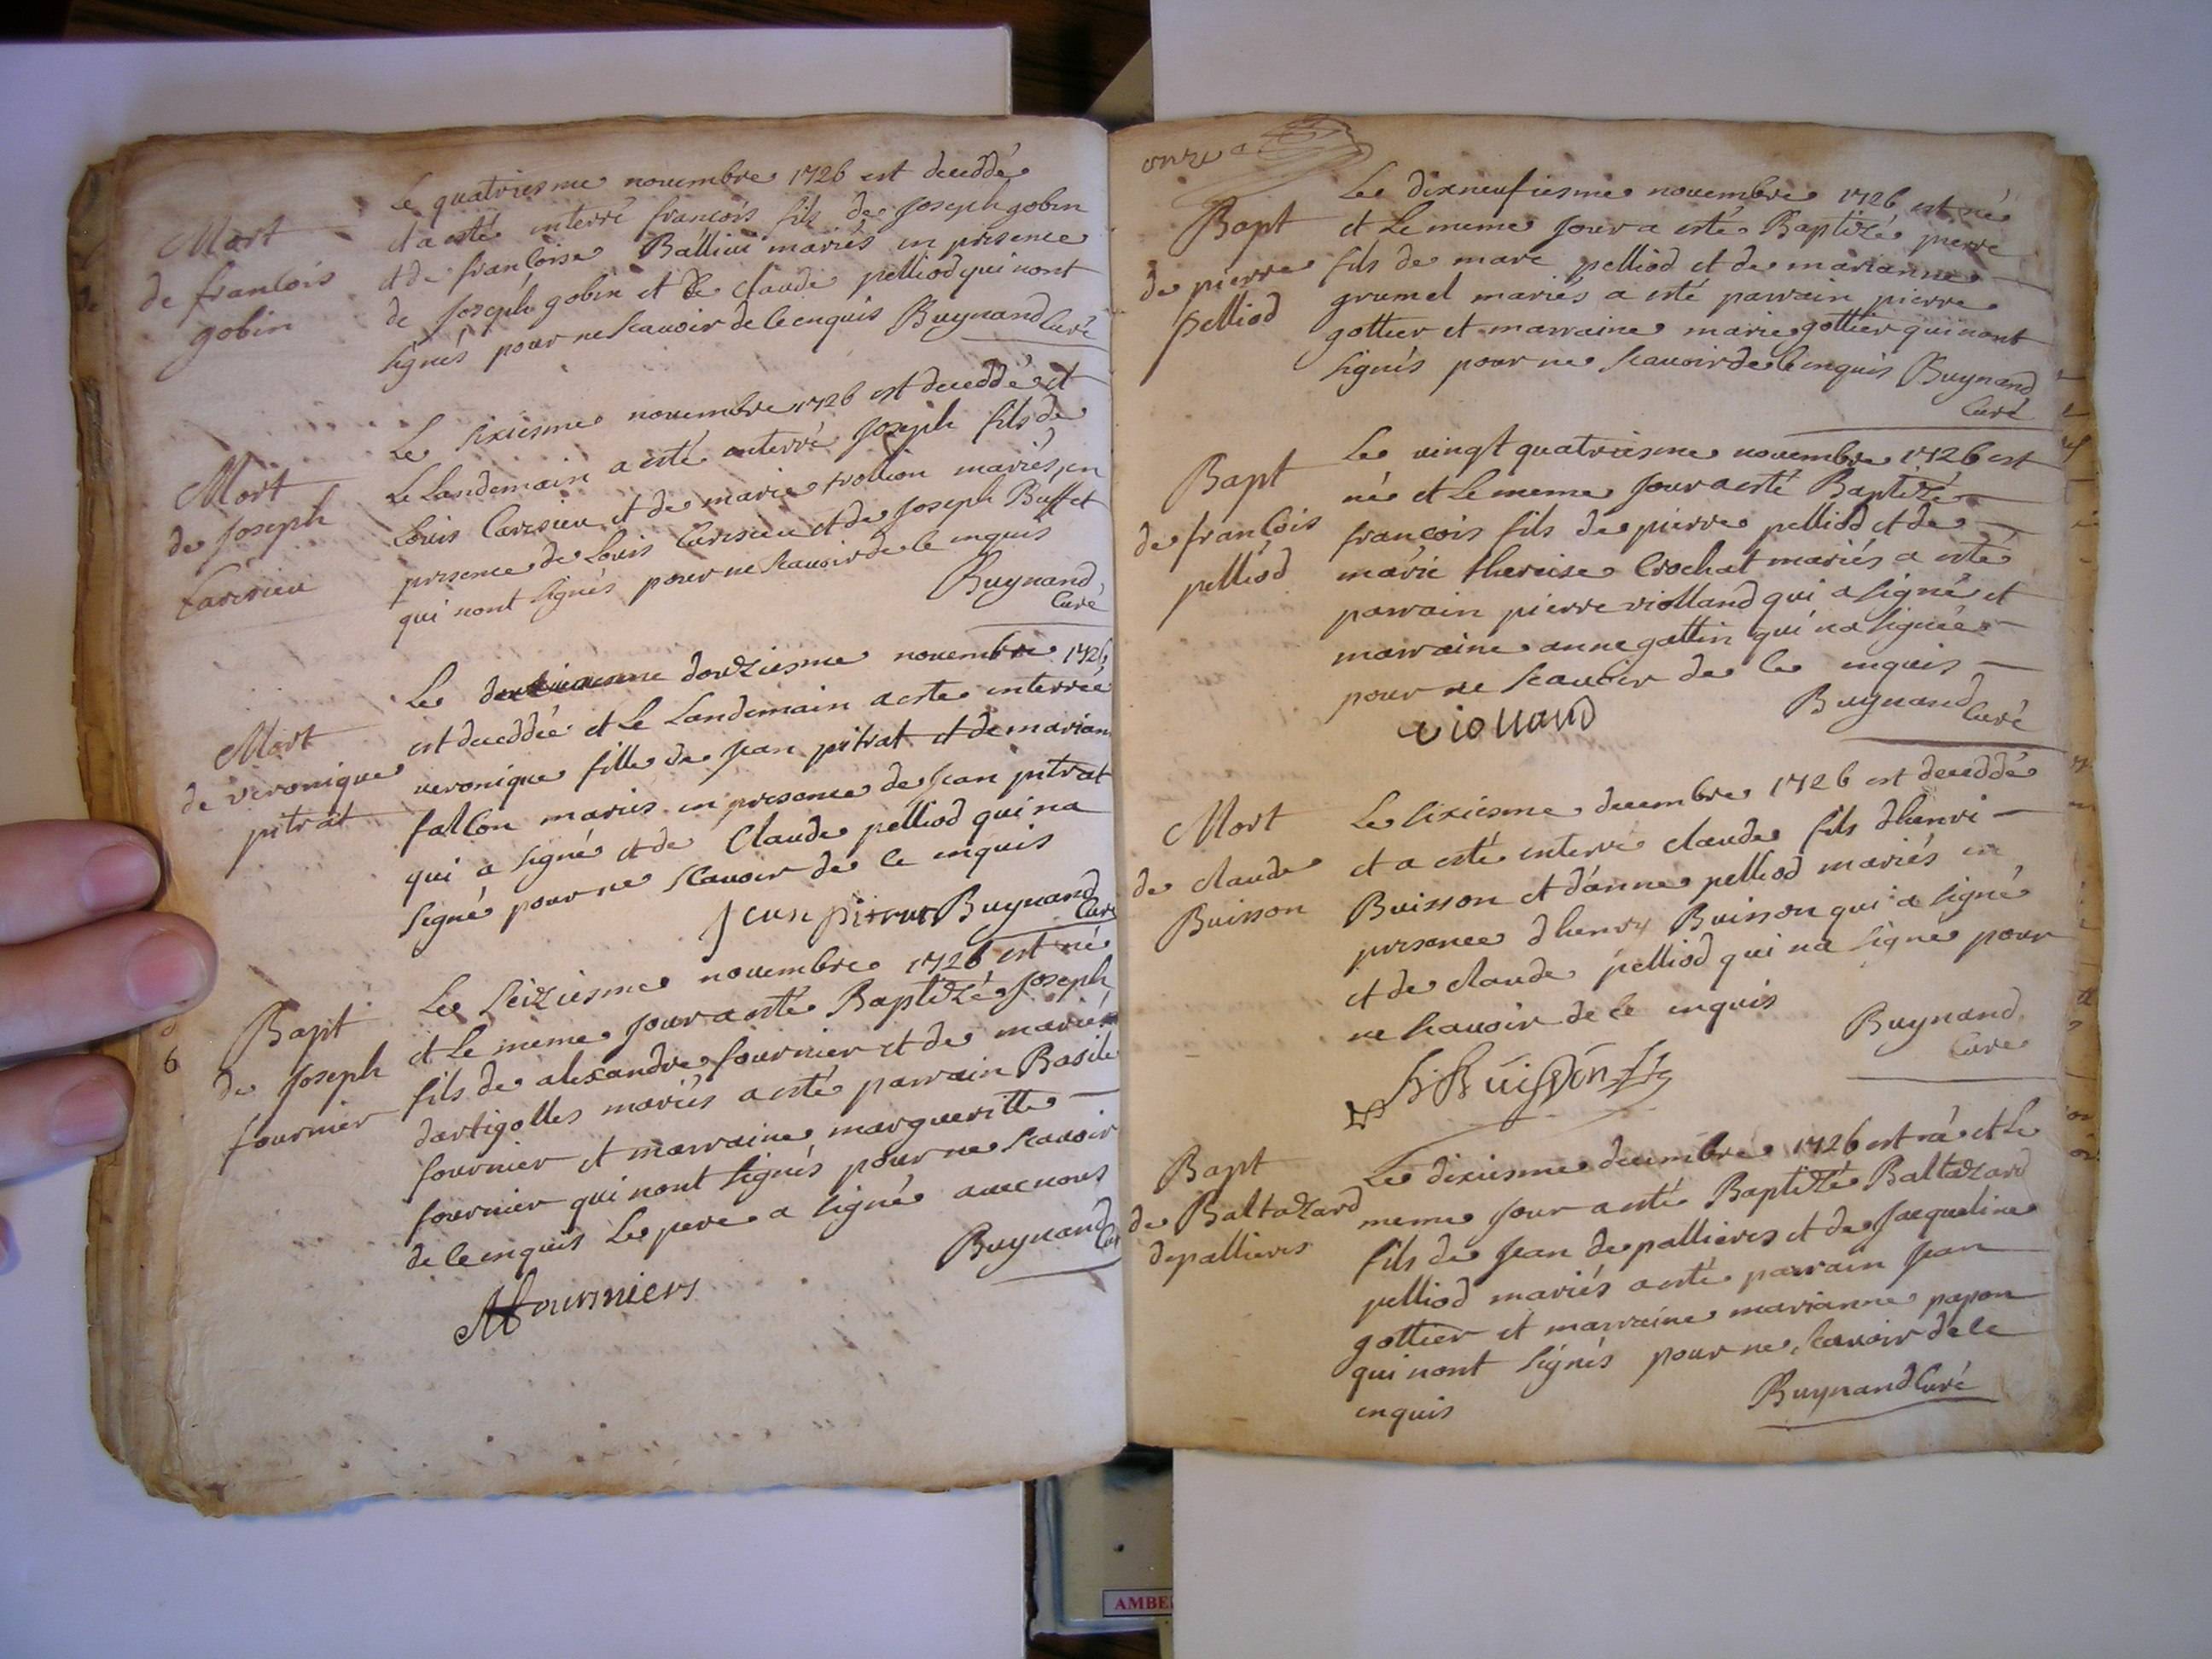 Mort
de francois
gobin
Le quatriesme nouembre 1726 est deceddé
et a esté interré francois fils de Joseph gobin
et de francoise Ballivi mariés en presence
de Joseph gobin et de claude pelliod qui nont
signés pour ne scauoir de ce enquis Buynand Curé
Mort
de Joseph
Carisieu
Le sixiesme nouembre 1726 est deceddé et
Le Landemain a esté enterré Joseph fils de
Louis Carisieu et de marie trollion mariés, en
presence de Louis Carisieu et de Joseph Buffet
qui nont signés pour ne scauoir de ce enquis
Buynand
Curé
Mort
de veronique
pitrat
Le douziesme nouembre 1726
est deceddée et Le Landemain a este interrée
veronique fille de Jean pitrat et de marian
fallon mariés en presence de Jean pitrat
qui a signé et de Claude pelliod qui na
signé pour ne scauoir de ce enquis
Jean pitrat Buynand
Curé
6
Bapt
de Joseph
fournier
Le seiziesme nouembre 1726 est né
et Le meme Jour a esté Baptizé Joseph
fils de alexandre fournier et de marie
dartigolles mariés a esté parrain Basile
fournier et marraine margueritte
fournier qui nont signés pour ne scauoir
de ce enquis Le pere a signé auec nous
Buynand
Cur
AFourniers
onze
Bapt
de pierre
pelliod
Le dixneufiesme nouembre 1726 est né
et Le meme Jour a esté Baptizé pierre
fils de marc pelliod et de marianne
grumel mariés a esté parrain pierre
gottier et marraine marie gottier qui nont
signés pour ne scauoir de ce enquis Buynand
Curé
Bapt
de francois
pelliod
Le vingt quatriesme nouembre 1726 est
né et Le meme Jour a esté Baptizé
francois fils de pierre pelliod et de
marie therese Crochat mariés a esté
parrain pierre violland qui a signé et
marraine anne gallin qui na signée
pour ne scauoir de ce enquis
Buynand
Curé
violland
Mort
de claude
Buisson
Le sixiesme decembre 1726 est deceddé
et a esté enterré claude fils dhenri
Buisson et d'anne pelliod mariés en
presence dhenry Buisson qui a signé
et de claude pelliod qui na signé pour
ne scauoir de ce enquis
Buynand
Curé
h Buisson
Bapt
de Baltazard
depallieres
Le dixiesme decembre 1726 est né et Le
meme Jour a esté Baptizé Baltazard
fils de Jean depallieres et de Jacqueline
pelliod mariés a esté parrain Jean
gottier et marraine marianne papon
qui nont signés pour ne scauoir de ce
enquis
Buynand Curé
AMBE